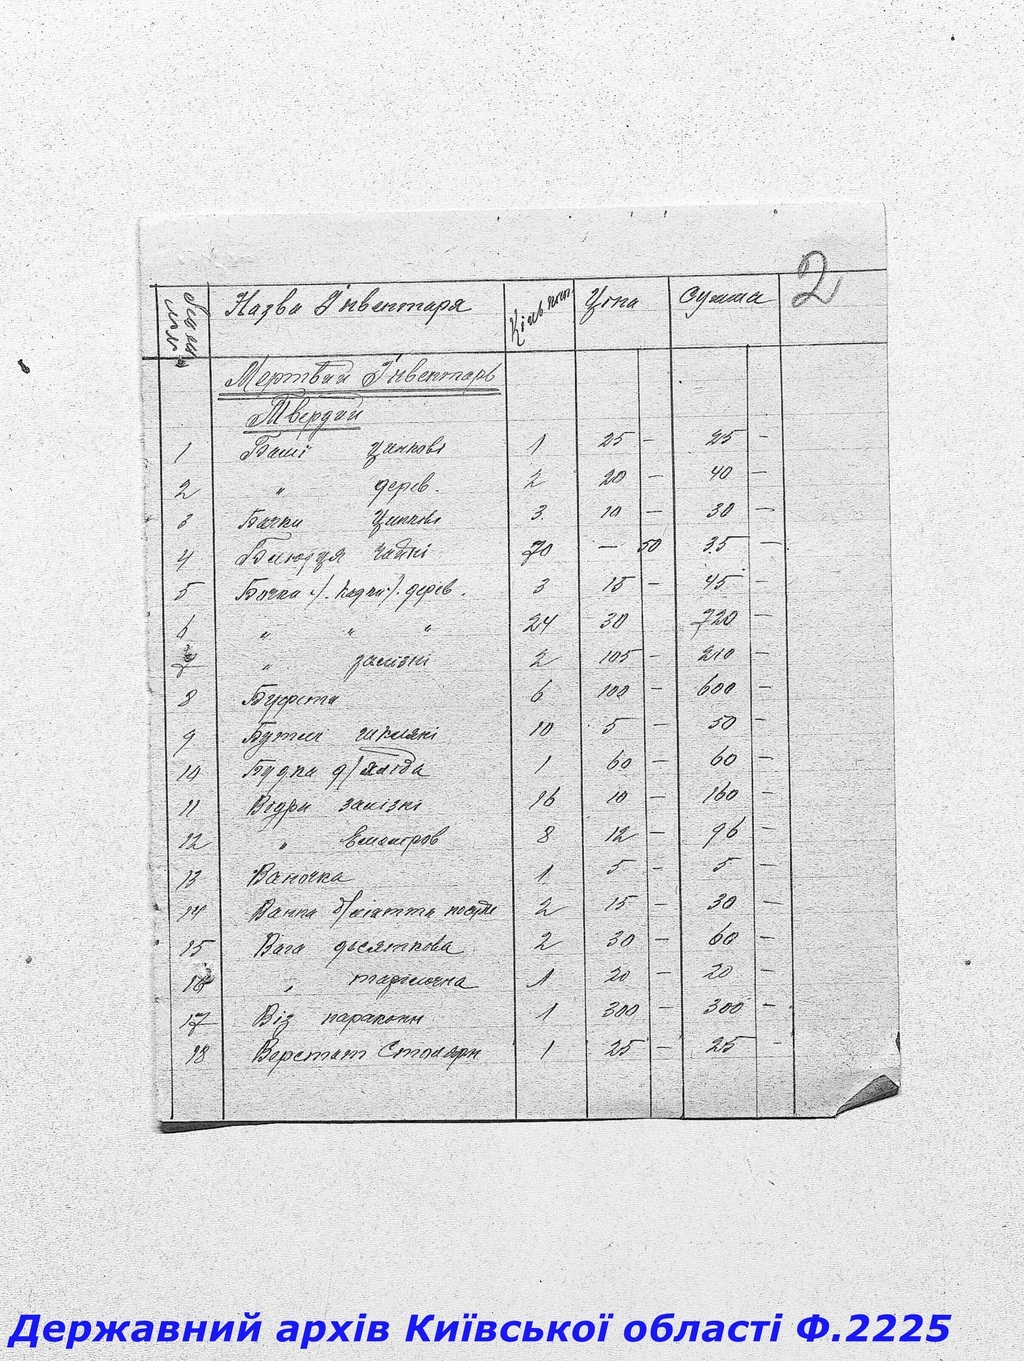 2
Назва Інвентаря Кільк. Ціна Сумма
Мертвий Інвентарь
Твердий
1 Балії Цинкові 1 25 - 25 -
2 " дерев. 2 20 - 40 -
3 Бачки Цинкові 3 10 - 30 -
4 Блюдця чайні 70 - 50 35 -
5 Бочки /. Кадки /. дерев. 3 15 - 45 -
6 " " " 24 30 720 -
7 " залізні 2 105 - 210 -
8 Буфета 6 100 - 600 -
9 Бутилі шкляні 10 5 - 50 -
10 Будка д/хліба 1 60 - 60 -
11 Відри залізні 16 10 - 160 -
12 " Емаліров 8 12 - 96 -
13 Ваночка 1 5 - 5 -
14 Ванна д/миття посуди 2 15 - 30 -
15 Вага десяткова 2 30 - 60 -
16 " тарілочна 1 20 - 20 -
17 Віз пароконн 1 300 - 300 -
18 Верстат Столярн 1 25 - 25 -
Державний архів Київської області Ф.2225